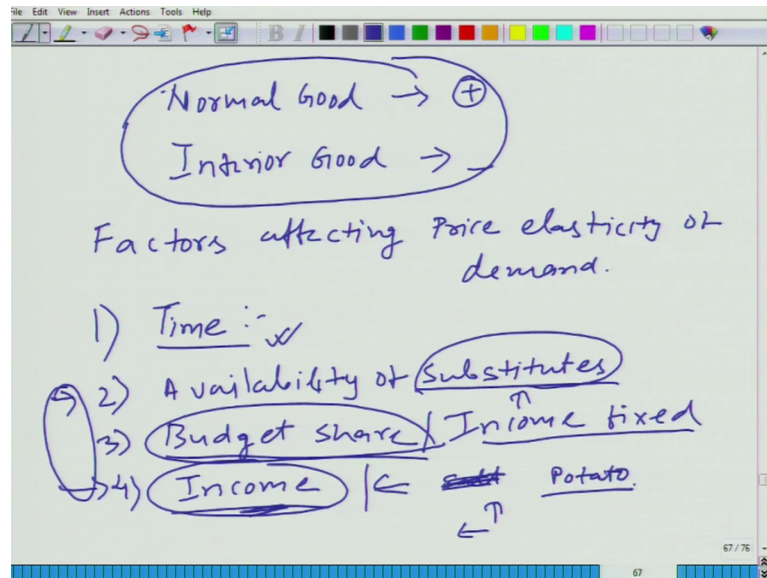 File Edit View Insert Actions Tools Help
Normal Good → +
Inferior Good → -
Factors affecting Price elasticity of
demand.
1) Time :-
2) Availability of substitutes
3) Budget share / Income fixed
4) Income | ← Potato.
67 / 76
67